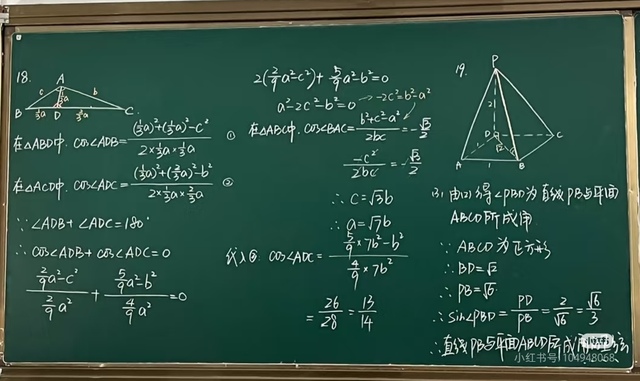 18.
A
c
b
⅓a
B
⅓a
D
⅔a
C
在△ABD中, cos∠ADB = ((⅓a)²+(⅓a)²-c²)/(2×⅓a×⅓a) ①
在△ACD中, cos∠ADC = ((⅓a)²+(⅔a)²-b²)/(2×⅓a×⅔a) ②
∵ ∠ADB + ∠ADC = 180°
∴ cos∠ADB + cos∠ADC = 0
(2/9 a²-c²)/(2/9 a²) + (5/9 a²-b²)/(4/9 a²) = 0
2(2/9 a²-c²) + 5/9 a²-b² = 0
a²-2c²-b² = 0 → -2c² = b²-a²
在△ABC中, cos∠BAC = (b²+c²-a²)/(2bc) = -√3/2
-c²/(2bc) = -√3/2
∴ c = √3b
∴ a = √7b
代入②. cos∠ADC = (5/9×7b²-b²)/(4/9×7b²)
= 26/28 = 13/14
19.
P
2
D
C
√2
A
1
B
(3) 由(2)得∠PBD为直线PB与平面
ABCD所成角
∵ ABCD为正方形
∴ BD = √2
∴ PB = √6
∴ sin∠PBD = PD/PB = 2/√6 = √6/3
∴ 直线PB与平面ABCD所成角的正弦
小红书号:104948068